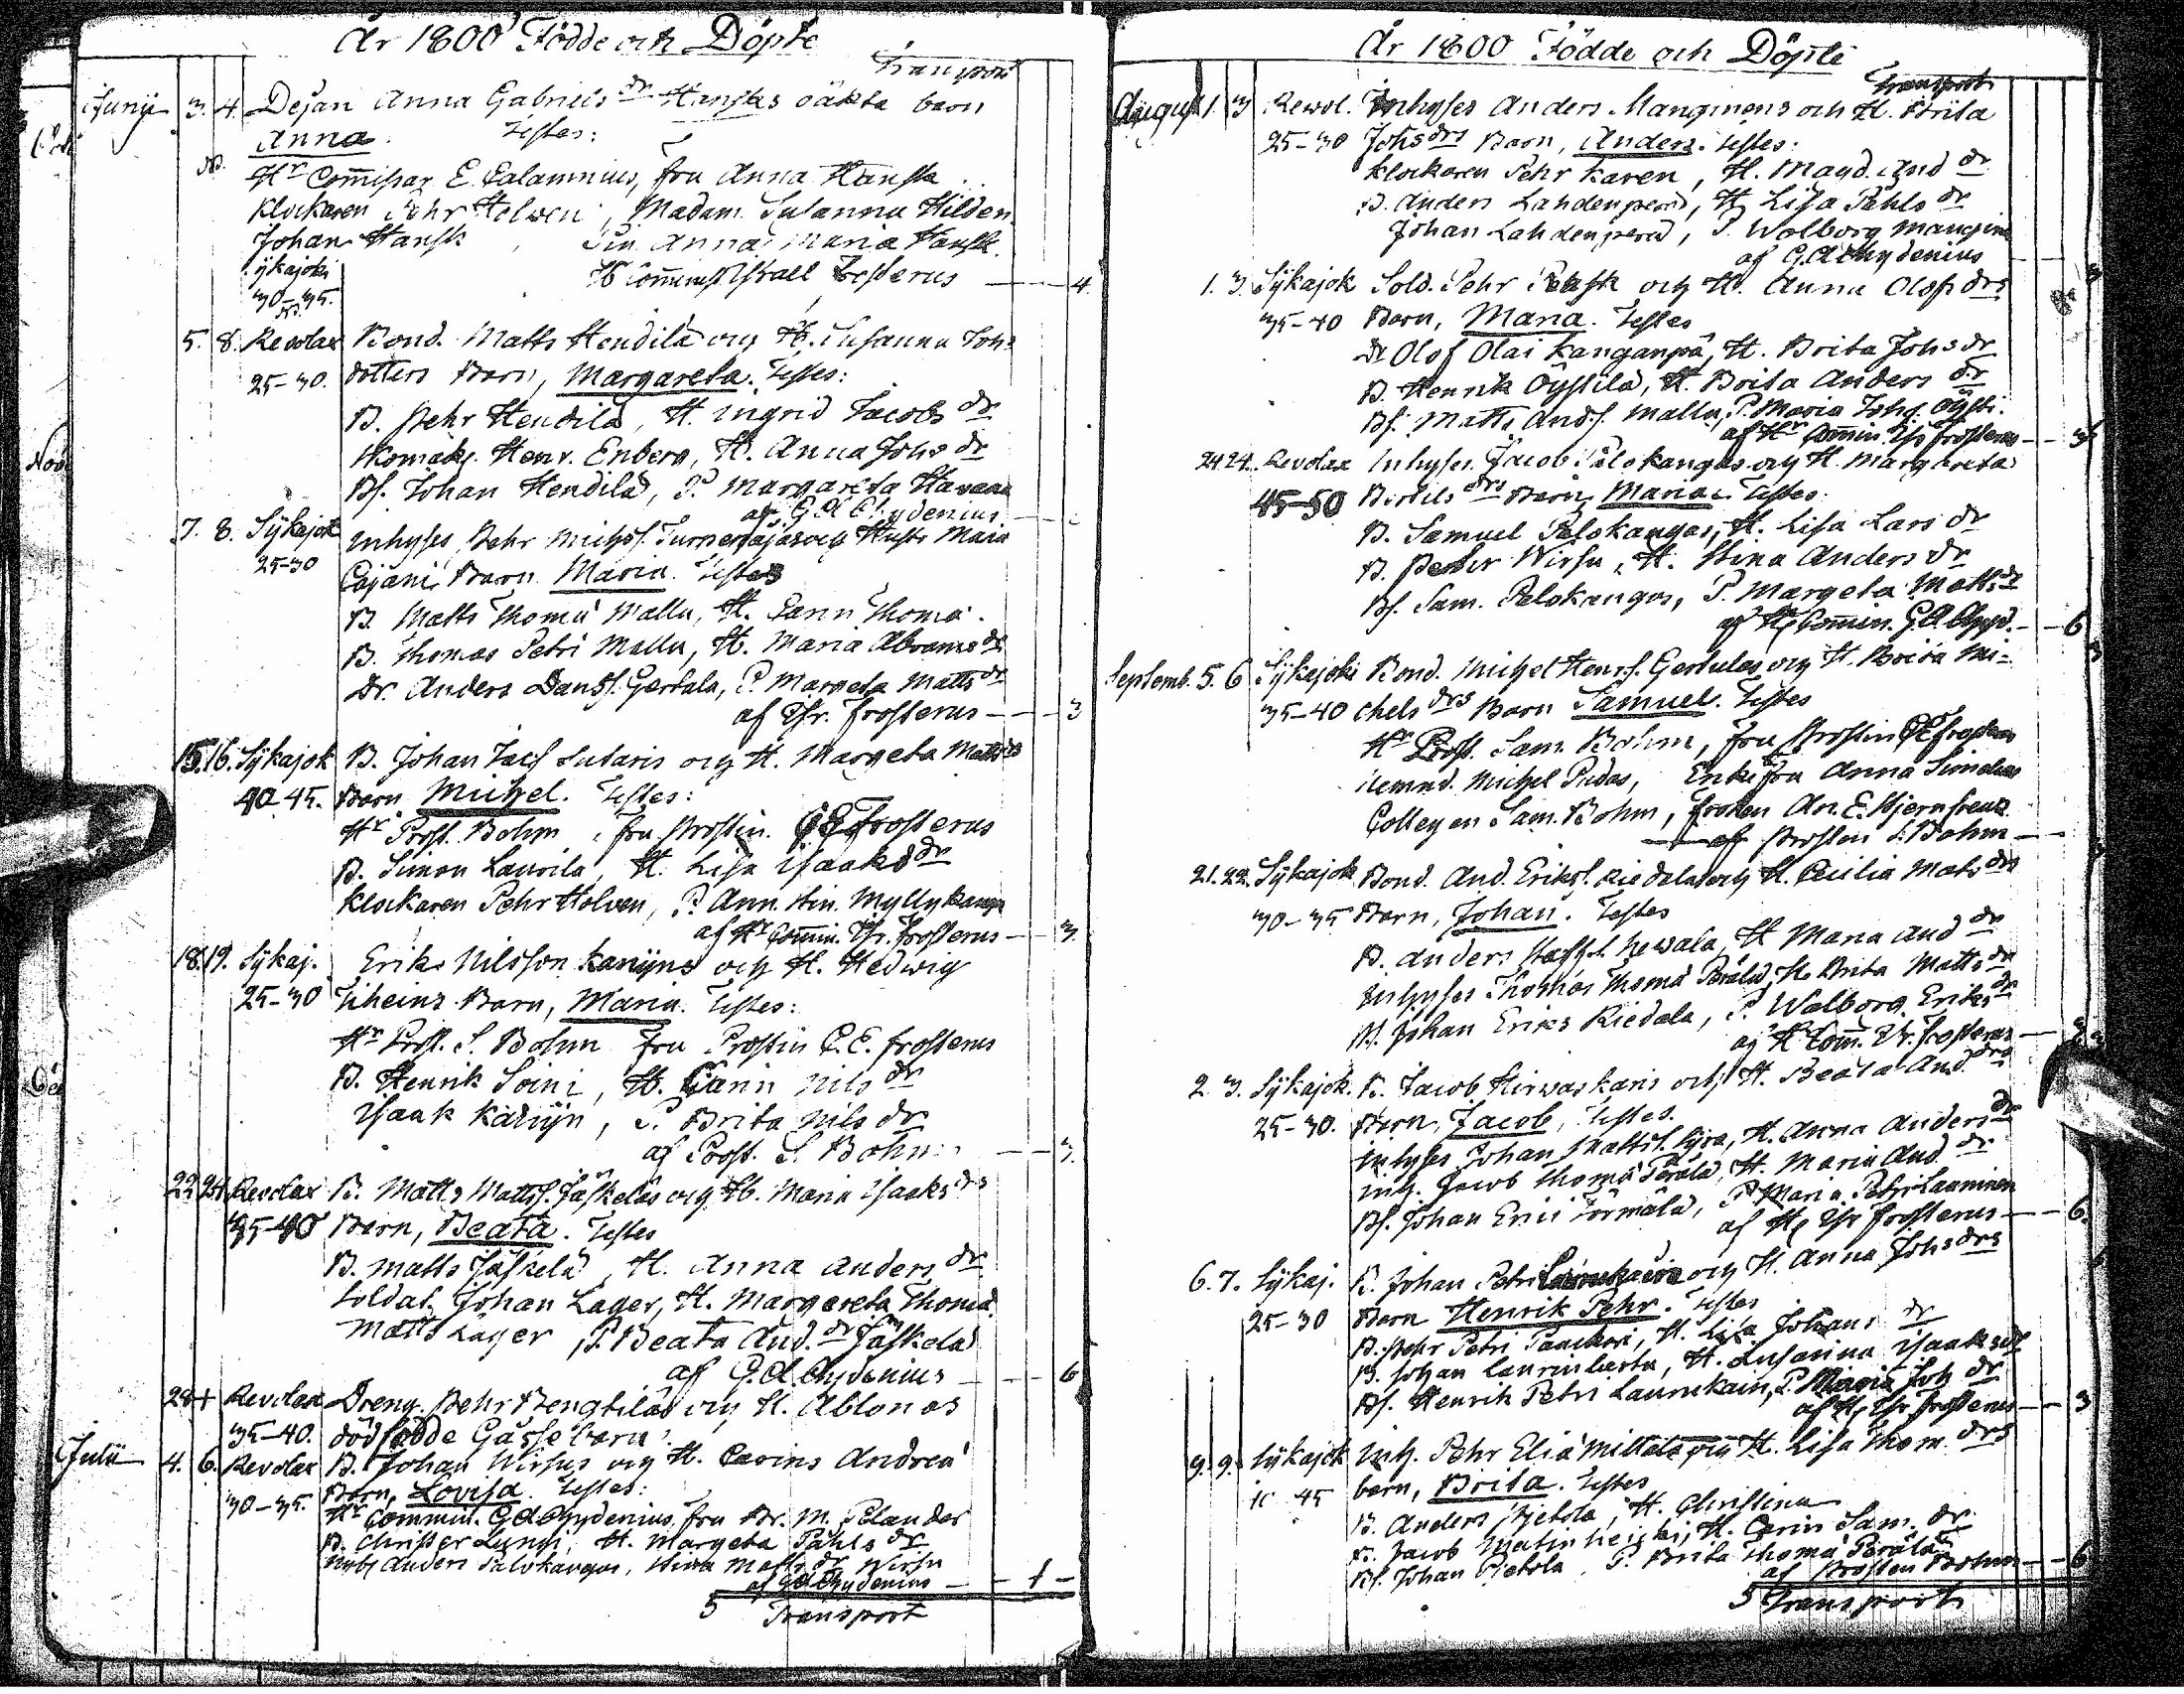 År 1800 Födde och Döpte
Transport
Junii 3. 4. Dejan Anna Gabriels dr Hansks oäkta barn
Anna. Testes:
Hr Com̄issar E. Calamnius, fru Anna Hansk
Klockaren Pehr Holven, Madam Susanna Hilden
Johan Hansk, Pin. Anna Maria Hansk.
Sijkajoki
30-35.
H Commin. Israell Frosterus 4.
5. 8. Revolax Bond. Matts Hendila och H. Susanna Joh:
25-30. dotters Barn, Margareta. Testes:
B. Pehr Hendila, H. Ingrid Jacobs dr
Henr. Enberg, H. Anna Johs dr
Bs. Johan Hendila, P. Margareta
af G A Chydenius
7. 8. Sijkajok Inhyses Pehr Michss. och Hustr Maria
25-30 Cajani Barn Maria. Testes
B. Matts Thomæ Mallu, H. Carin Thomæ.
B. Thomas Petri Mallu, H. Maria Abrams dr
Dr. Anders Danss. Gertala, P. Margeta Matts dr
af Isr. Frosterus 3
15. 16. Sijkajok B. Johan Jacs. Sutaris och H. Margeta Matts drs
40-45. Barn Michel. Testes:
Hr Prost. Bohm, fru Prostin. C E Frosterus
B. Simon Laurila, H. Lisa Isaaks dr
Klockaren Pehr Holven, P. Ann. Stin. Myllykangas
af Hr Com̄in. Isr. Frosterus 3.
18. 19. Sijkaj. Eriks Nilsson Karijns och H. Hedwig
25-30 Barn, Maria. Testes:
Hr Prost. S. Bohm fru Prostin C. E. Frosterus
B. Henrik Soini, H. Carin Nils dr
Isaak Karijn, P. Brita Nils dr
af Prost. S. Bohm 3.
22 24. Revolax B. Matts Mattss. Jäskeläs och H. Maria Isaks drs
35-40 Barn, Beata. Testes
B. Matts Jäskelä, H. Anna Anders dr
Soldat. Johan Lager, H. Margareta Thomæ
Matts Lager, P. Beata And. dr Jäskelä
af G. A. Chydenius 6
28 + Revolax Dreng. Pehr Bengtiläs och H. Ablonas
35-40. dödfödde Gåsse barn.
Julii 4. 6. Revolax B. Johan Wirsus och H. Carins Andreæ
30-35. Barn, Lovisa. Testes:
Hr Commin. G A Chydenius, fru Br. M. Polander
B. Christer Lumji, H. Margeta Pahls dr
Inhys Anders Palokangas, Stina Matts dr Wirsu
af G A Chydenius 1
5 Transport
År 1800 Födde och Döpte
Transport
August 1. 3 Rewol. Inhyses Anders Manginens och H. Brita
25-30 Johs drs Barn, Anders. Testes:
Klockaren Pehr Karen, H. Magd. And dr
B. Anders Lahdenperä, H Lisa Pahls dr
Johan Lahdenperä, P. Walborg Mangin
af G. A Chydenius
1. 3. Sijkajok Sold. Pehr Rask och H. Anna Olofs drs
35-40 Barn, Maria. Testes
Dr Olof Olai Kanganpä, H. Brita Johs dr
B. Henrik Öystilä, H. Brita Anders dr
Bs. Matts Ands. Mallu, P. Maria Johs. Öysti.
af Hr Com̄in. Isr Frosterus 3
24 24. Revolax Inhyses Jacob Palokangas och H. Margareta
45-50 Bertils drs Barn Maria. Testes:
B. Samuel Palokangas, H. Lisa Lars dr
B. Pehr Wirsu, H. Stina Anders dr
Bs. Sam. Palokangas, P. Margeta Matts dr
af Hr Com̄in. G. A Chyd. 6
Septemb. 5. 6 Sijkajoki Bond. Michel Henrs. Gertulas och H. Brita Mi=
35-40 chels drs Barn Samuel. Testes
Hr Prost. Sam. Bohm, fru Prostin C E Frosterus
Nemnd. Michel Pudas, Enkefru Anna Simelius
Collegen Sam. Bohm, fröken An. E. Stjernkreuz
af Prosten S. Bohm
21. 22. Sijkajok Bond. And. Erikss. Riedalas och H. Cecilia Mats drs
30-35 Barn, Johan. Testes
B. Anders Staffs. Pewala, H Maria And dr
Inhyses Thomas Thomæ Perälä, H. Brita Matts dr
Johan Eriks Riedala, P. Walborg Eriks dr
af Hr Com̄. Isr. Frosterus
2. 3. Sijkajok. B. Jacob Hirwaskaris och H. Beata And. drs
25-30. Barn, Jacob, Testes.
Inhyses Johan Mattss. Sijra, H. Anna Anders dr
Inh. Jacob Thomæ Perälä, H. Maria And. dr
Bs. Johan Erici Törmälä, P. Maria Pehr Launinen
af H. Isr Frosterus 6.
6. 7. Sijkaj. B. Johan Petri Laurukain och H. Anna Johs drs
25-30 Barn Henrik Pehr. Testes
B. Pehr Petri Paackari, H. Lisa Johans dr
B. Johan, H. Susanna Isaaks dr
Bs. Henrik Petri Laurukain, P. Maria Joh dr
af H. Isr Frosterus 3
9. 9. Sijkajok Inh. Pehr Eliæ Mittala och H. Lisa Thom. drs
45 barn, Brita. Testes
B. Anders Pietola, H. Christina
B. Jacob Matinheicki, H. Carin Sam. dr
Bs. Johan Pietola, P. Brita Thomæ Perälä
af Prosten Bohm 6
5 Transport